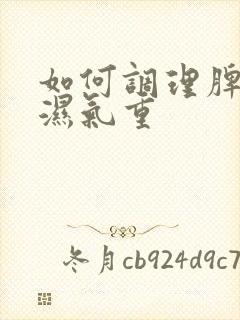 如何調理脾
濕氣重
冬月cb924d9c7